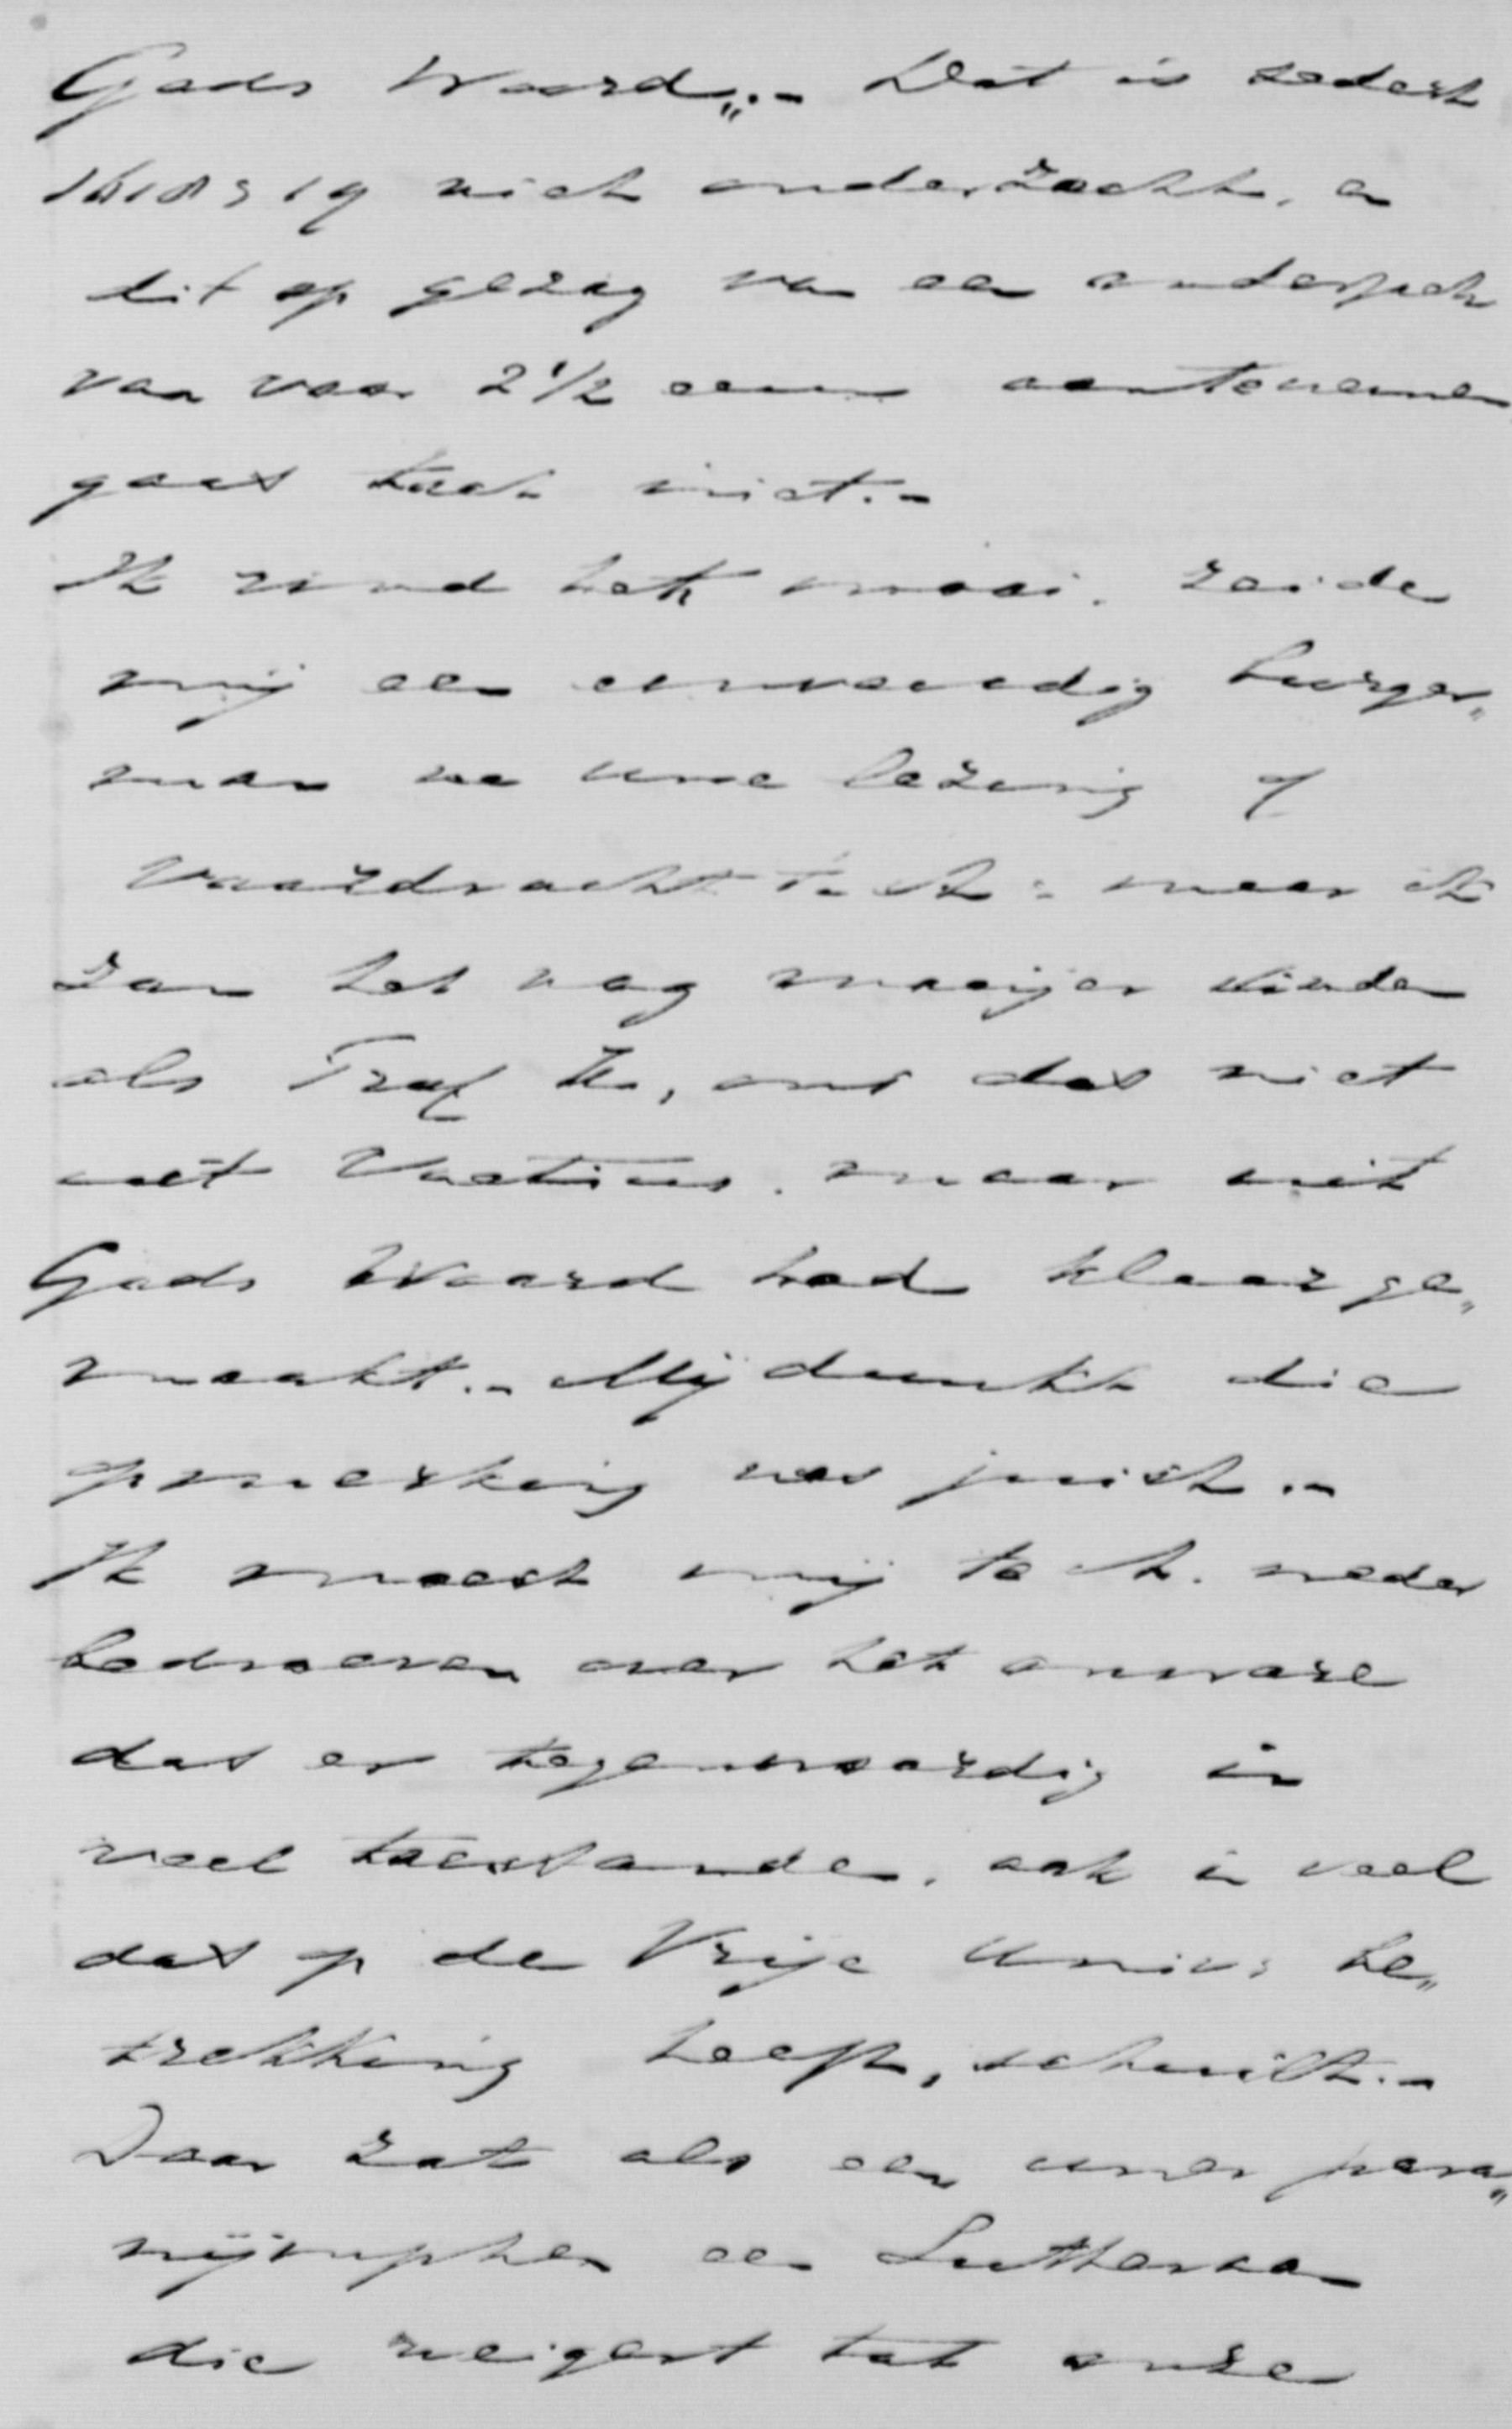 Gods Woord„.- Dat is sedert
1618 & 19 niet onderzocht, en
dit op gezag van een onderzoek
van voor 2 1/2 eeuw aantenemen
gaat toch niet.-
Ik vind het mooi, zeide
mij een eenvoudig burger„
man na uwe lezing of
voordracht te A: maar ik
zou het nog mooijer vinden
als Prof K., ons dat niet
uit Voetius, maar uit
Gods Woord had klaar ge„
maakt.- Mij dunkt die
opmerking was juist.-
Ik moest mij te A. weder
bedroeven over het onware
dat er tegenwoordig in
veel toestanden, ook in veel
dat op de Vrije Univ: be„
trekking heeft, schuilt.-
Daar zat als een uwer para„
nijmphen een Lutheraan
die weigert tot onze